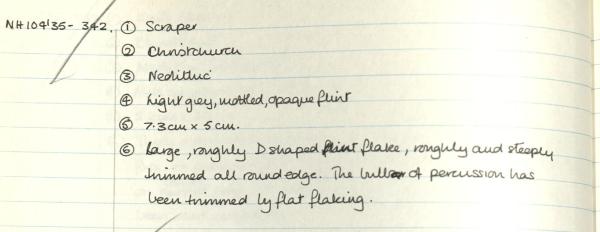 NH104'35-342. ① Scraper
② Christchurch
③ Neolithic
④ Light grey, mottled, opaque flint
⑤ 7.3cm x 5cm.
⑥ Large, roughly D shaped flint flake, roughly and steeply
trimmed all round edge. The bulb of percussion has
been trimmed by flat flaking.